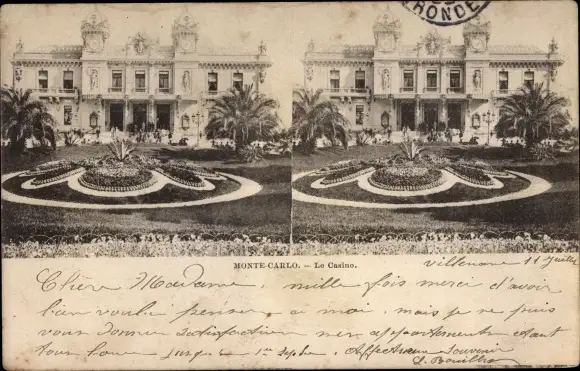 RHONE
MONTE-CARLO. — Le Casino.
Villeranc 11 Juillet
Chère Madame, mille fois merci d'avoir
bien voulu penser a moi, mais je ne puis
vous donner satisfaction mes appartements étant
tous loués jusqu'a 1er Septbre. Affectueux Souvenir